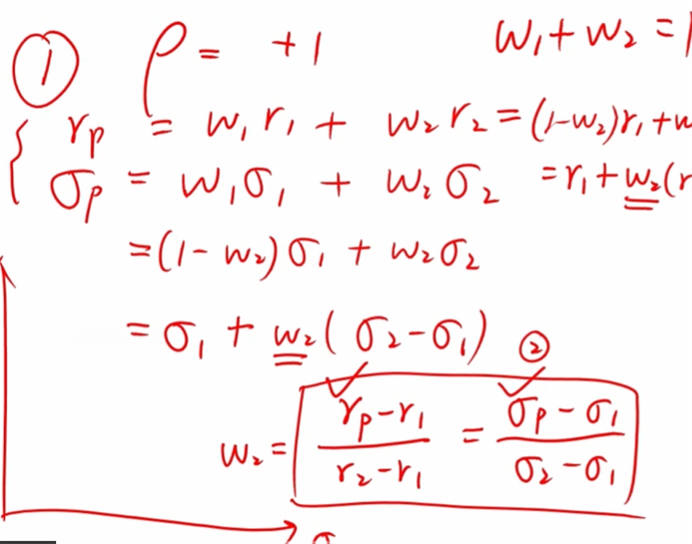 ① ρ = +1 w₁ + w₂ = 1
{ rₚ = w₁r₁ + w₂r₂ = (1-w₂)r₁ + w
σₚ = w₁σ₁ + w₂σ₂ = r₁ + w₂(r
= (1-w₂)σ₁ + w₂σ₂
= σ₁ + w₂(σ₂-σ₁) ②
w₂ = (rₚ-r₁)/(r₂-r₁) = (σₚ-σ₁)/(σ₂-σ₁)
σ